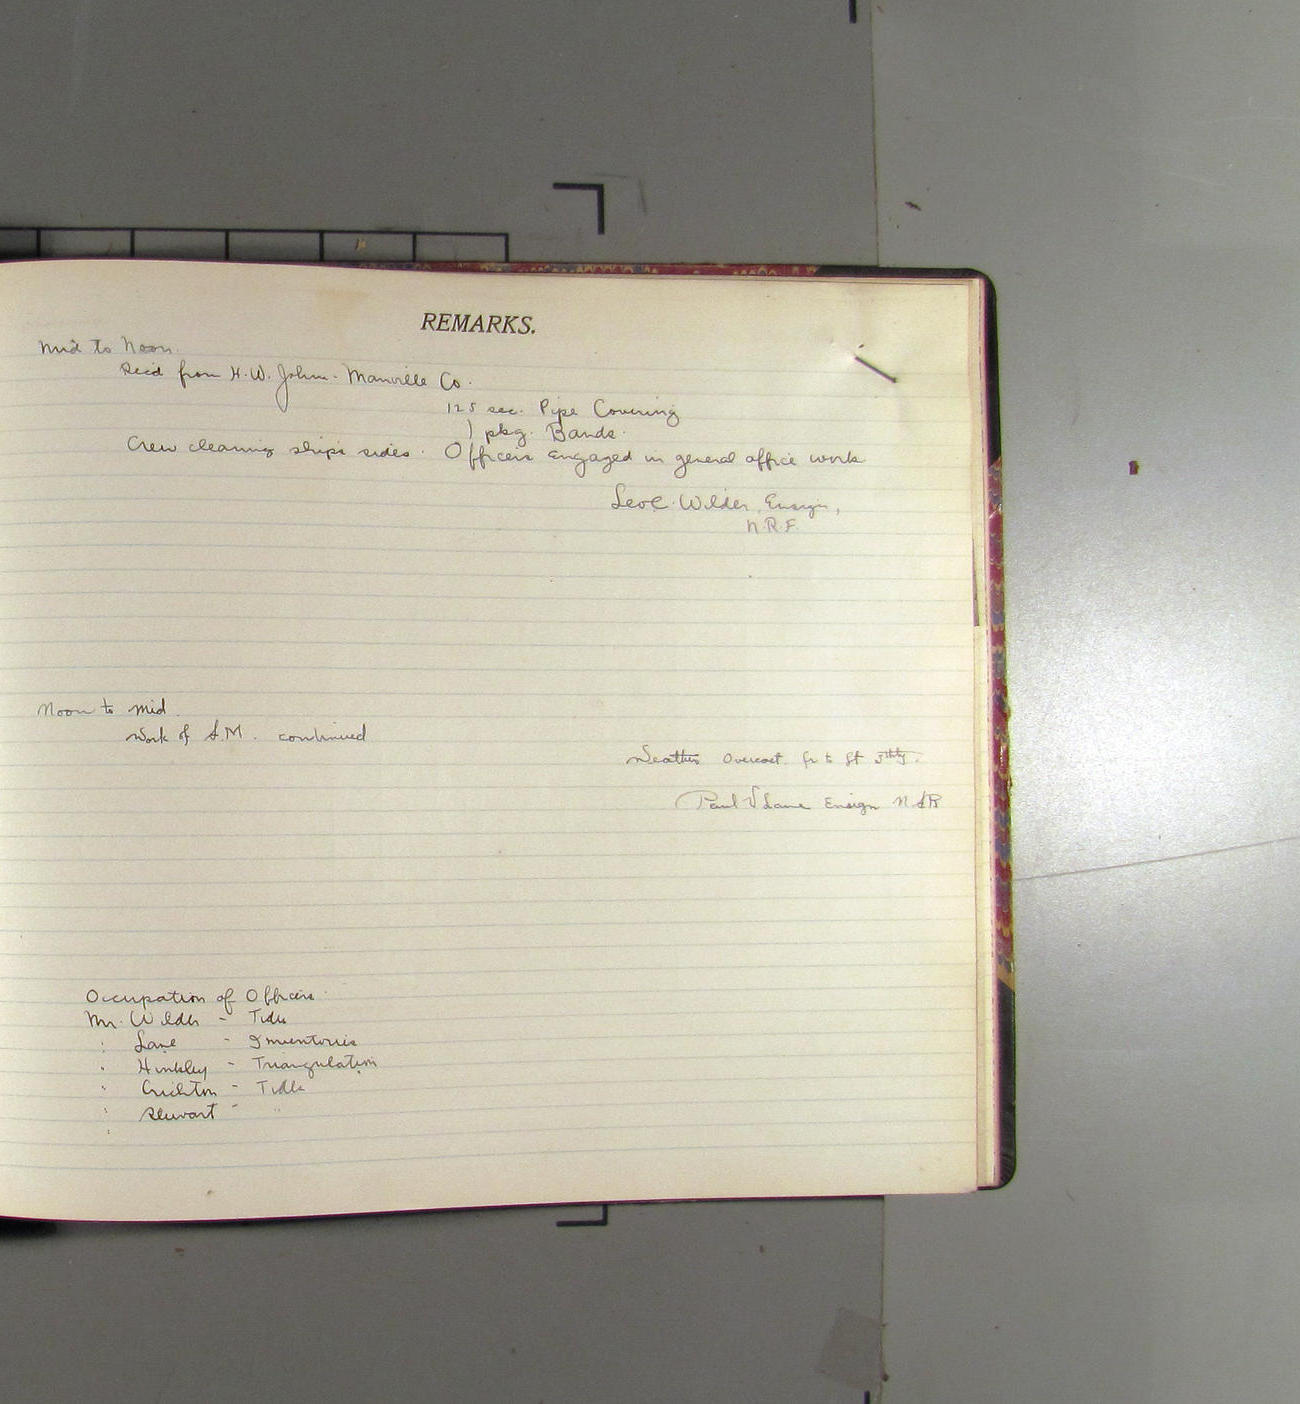 REMARKS.
Mid to Noon.
Recd from H.W. Johns-Manville Co.
125 sec. Pipe Covering
1 pkg. Bands.
Crew cleaning ships sides. Officers engaged in general office work
Leo C. Wilder, Ensign,
N.R.F.
Noon to Mid.
Work of A.M. continued
Weather Overcast.
Paul V Lane Ensign
Occupation of Officers.
Mr. Wilder - Tides
" Lane - Inventories
" Hinkley - Triangulation
" Crichton - Tides
" Stewart - "
"